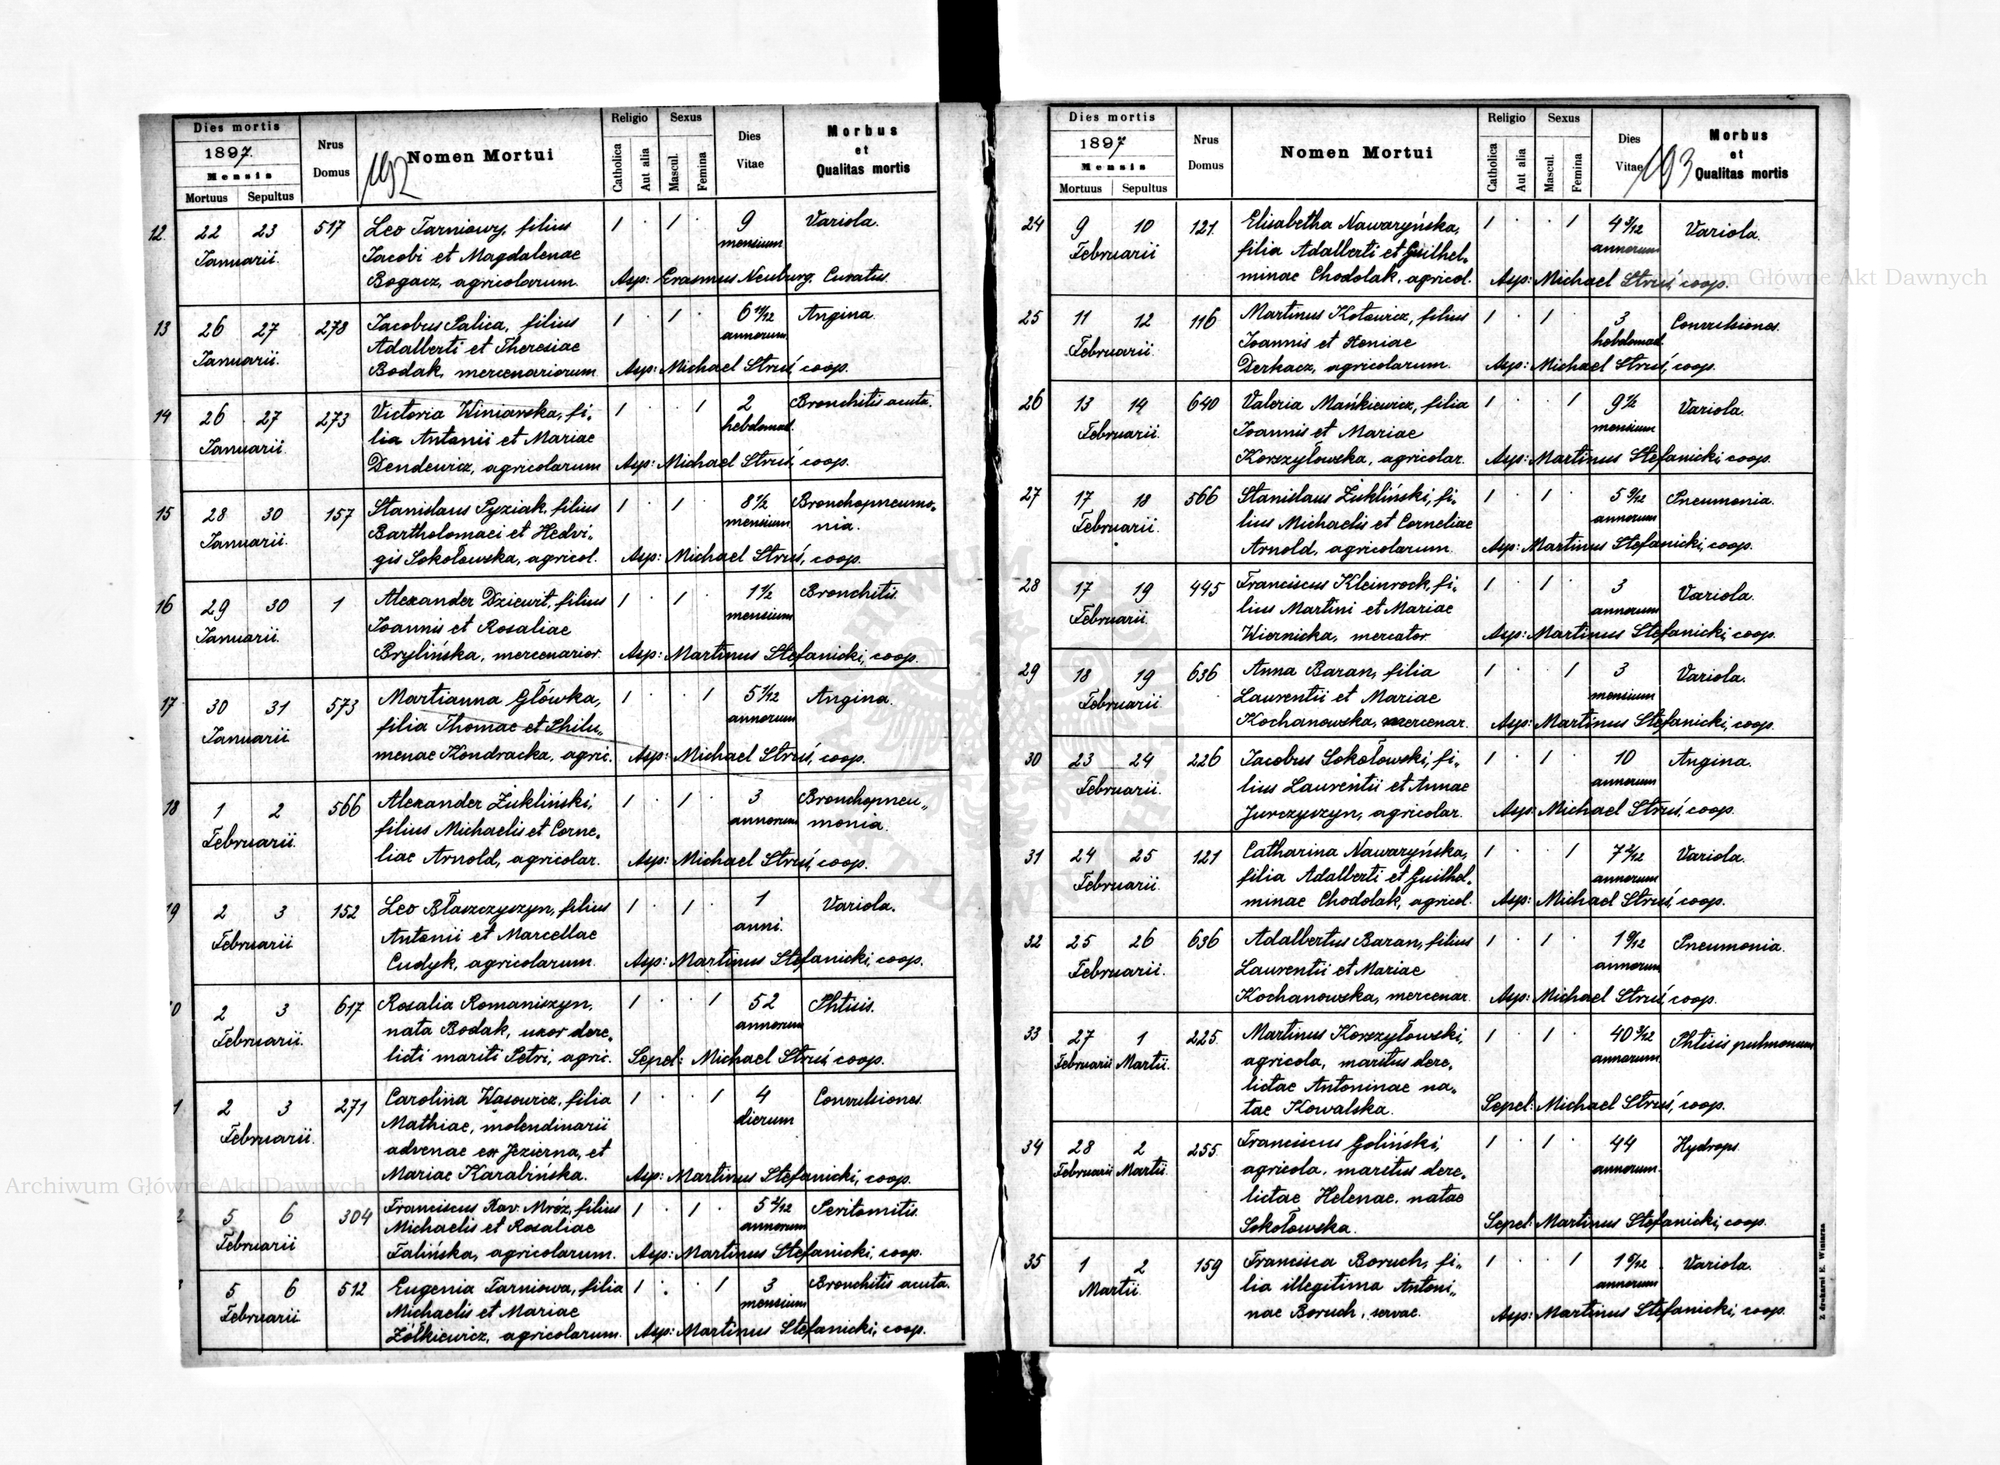 Dies mortis
1897.
Mensis
Mortuus Sepultus
Nrus Domus
192
Nomen Mortui
Religio
Catholica Aut alia
Sexus
Mascul. Femina
Dies Vitae
Morbus et Qualitas mortis
12. 22 23 517 Leo Tarniowy, filius 1 · 1 · 9 Variola.
Januarii. Jacobi et Magdalenae mensium
Bogacz, agricolarum. Asp: Erasmus Neuburg. Curatus.
13 26 27 278 Jacobus Palica, filius 1 · 1 · 6 11/12 Angina.
Januarii. Adalberti et Theresiae annorum
Bodak, mercenariorum. Asp: Michael Struś, coop.
14 26 27 273 Victoria Winiarska, fi- 1 · · 1 2 Bronchitis acuta.
Januarii. lia Antonii et Mariae hebdomad.
Dendewicz, agricolarum Asp: Michael Struś, coop.
15 28 30 157 Stanislaus Pyziak filius 1 · 1 · 8 1/2 Bronchopneumo-
Januarii. Bartholomaei et Hedvi- mensium nia.
gis Sokołowska, agricol. Asp: Michael Struś, coop.
16 29 30 1 Alexander Dziewit, filius 1 · 1 · 1 1/2 Bronchitis.
Januarii. Joannis et Rosaliae mensium
Brylińska, mercenarior. Asp: Martinus Stefanicki, coop.
17 30 31 573 Martianna Główka, 1 · · 1 5 1/12 Angina.
Januarii. filia Thomae et Philu- annorum
menae Kondracka, agric. Asp: Michael Struś, coop.
18 1 2 566 Alexander Żukliński, 1 · 1 · 3 Bronchopneu-
Februarii. filius Michaelis et Corne- annorum monia.
liae Arnold, agricolar. Asp: Michael Struś, coop.
19 2 3 152 Leo Błaszczyszyn, filius 1 · 1 · 1 Variola.
Februarii Antonii et Marcellae anni.
Cudyk, agricolarum. Asp: Martinus Stefanicki, coop.
0 2 3 617 Rosalia Romaniszyn, 1 · · 1 52 Phtisis.
Februarii. nata Bodak, uxor dere- annorum
licti mariti Petri, agric. Sepel: Michael Struś coop.
1 2 3 271 Carolina Wąsowicz, filia 1 · · 1 4 Convulsiones.
Februarii. Mathiae, molendinarii dierum
advenae ex Jezierna, et
Mariae Karabińska. Asp: Martinus Stefanicki, coop.
2 5 6 304 Franciscus Xav. Mróz, filius 1 · 1 · 5 2/12 Peritonitis.
Februarii Michaelis et Rosaliae annorum
Falińska, agricolarum. Asp: Martinus Stefanicki, coop.
3 5 6 512 Eugenia Tarniowa, filia 1 · · 1 3 Bronchitis acuta.
Februarii Michaelis et Mariae mensium
Żółkiewicz, agricolarum. Asp: Martinus Stefanicki, coop.
Dies mortis
1897
Mensis
Mortuus Sepultus
Nrus Domus
Nomen Mortui
Religio
Catholica Aut alia
Sexus
Mascul. Femina
Dies Vitae
193
Morbus et Qualitas mortis
24 9 10 121. Elisabetha Nawaryńska, 1 · · 1 4 3/12 Variola.
Februarii filia Adalberti et Guilhel- annorum
minae Chodolak, agricol. Asp: Michael Struś, coop.
25 11 12 116 Martinus Kotowicz, filius 1 · 1 · 3 Convulsiones.
Februarii. Joannis et Xeniae hebdomad.
Derkacz, agricolarum. Asp: Michael Struś, coop.
26 13 14 640 Valeria Mańkiewicz, filia 1 · · 1 9 1/2 Variola.
Februarii. Joannis et Mariae mensium
Korczyłowska, agricolar. Asp: Martinus Stefanicki, coop.
27 17 18 566 Stanislaus Żukliński, fi- 1 · 1 · 5 9/12 Pneumonia.
Februarii. lius Michaelis et Corneliae annorum
Arnold, agricolarum. Asp: Martinus Stefanicki, coop.
28 17 19 445 Franciscus Kleinrock, fi- 1 · 1 · 3 Variola.
Februarii. lius Martini et Mariae annorum
Wiernicka, mercator. Asp: Martinus Stefanicki, coop.
29 18 19 636 Anna Baran, filia 1 · · 1 3 Variola.
Februarii. Laurentii et Mariae mensium
Kochanowska, mercenar. Asp: Martinus Stefanicki, coop.
30 23 24 226 Jacobus Sokołowski, fi- 1 · 1 · 10 Angina.
Februarii. lius Laurentii et Annae annorum
Jurczyszyn, agricolar. Asp: Michael Struś, coop.
31 24 25 121 Catharina Nawaryńska, 1 · · 1 7 2/12 Variola.
Februarii. filia Adalberti et Guilhel- annorum
minae Chodolak, agricol. Asp: Michael Struś, coop.
32 25 26 636 Adalbertus Baran, filius 1 · 1 · 1 9/12 Pneumonia.
Februarii. Laurentii et Mariae annorum
Kochanowska, mercenar. Asp: Michael Struś, coop.
33 27 1 225. Martinus Korczyłowski, 1 · 1 · 40 3/12 Phtisis pulmonum
Februarii Martii. agricola, maritus dere- annorum
lictae Antoninae na-
tae Kowalska. Sepel: Michael Struś, coop.
34 28 2 255 Franciscus Goliński, 1 · 1 · 44 Hydrops.
Februarii Martii. agricola, maritus dere- annorum.
lictae Helenae, natae
Sokołowska. Sepel: Martinus Stefanicki, coop.
35 1 2 159 Francisca Boruch, fi- 1 · · 1 1 6/12 Variola.
Martii. lia illegitima Antoni- annorum
nae Boruch, servae. Asp: Martinus Stefanicki, coop.
Z drukarni E. Wintarza
Archiwum Główne Akt Dawnych
Archiwum Główne Akt Dawnych
ARCHIWUM GŁÓWNE AKT DAWNYCH